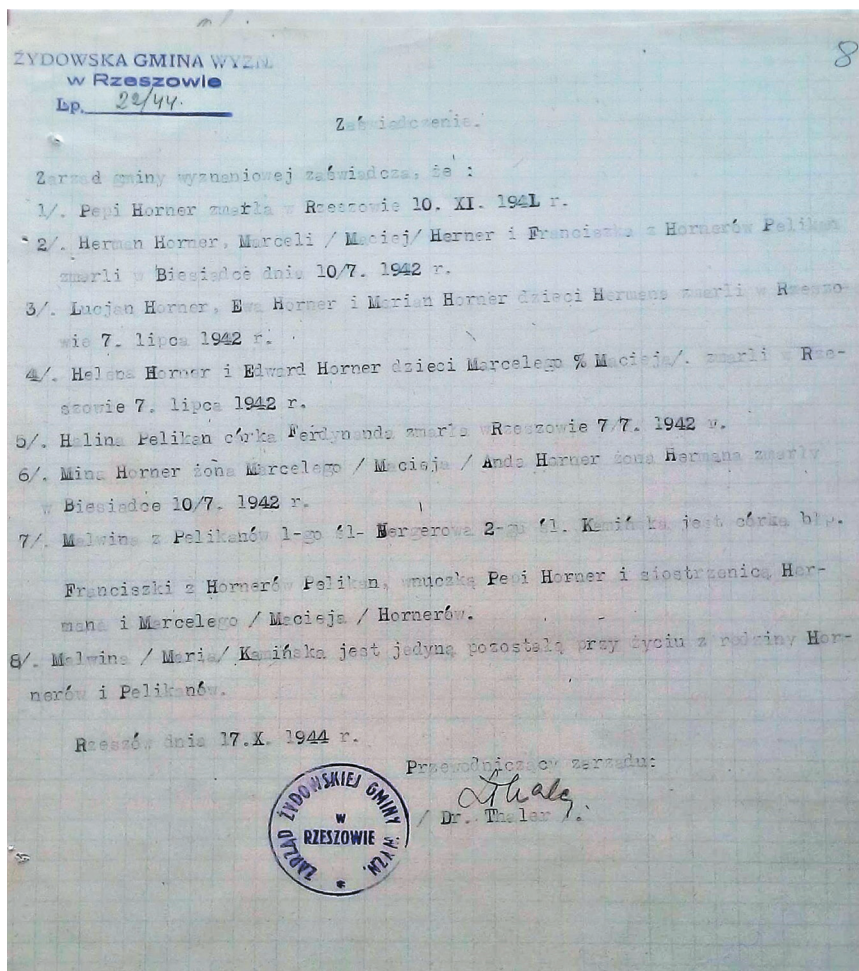 8
ŻYDOWSKA GMINA WYZN.
w Rzeszowie
Lp. 22/44.
Zaświadczenie.
Zarząd gminy wyznaniowej zaświadcza, że :
1/. Pepi Horner zmarła w Rzeszowie 10. XI. 1941 r.
2/. Herman Horner, Marceli / Maciej/ Herner i Franciszka z Hornerów Pelikan
zmarli w Biesiadce dnia 10/7. 1942 r.
3/. Lucjan Horner, Ewa Horner i Marian Horner dzieci Hermana zmarli w Rzeszo-
wie 7. lipca 1942 r.
4/. Helena Horner i Edward Horner dzieci Marcelego % Macieja/. zmarli w Rze-
szowie 7. lipca 1942 r.
5/. Halina Pelikan córka Ferdynanda zmarła wRzeszowie 7/7. 1942 r.
6/. Mina Horner żona Marcelego / Macieja / Anda Horner żona Hermana zmarły
w Biesiadce 10/7. 1942 r.
7/. Malwina z Pelikanów 1-go śl- Bergerowa 2-go śl. Kamińska jest córką błp.
Franciszki z Hornerów Pelikan, wnuczką Pepi Horner i siostrzenicą Her-
mana i Marcelego / Macieja / Hornerów.
8/. Malwina / Maria/ Kamińska jest jedyną pozostałą przy życiu z rodziny Hor-
nerów i Pelikanów.
Rzeszów dnia 17.X. 1944 r.
Przewodniczący zarządu:
/ Dr. Thaler /.
ZARZĄD ŻYDOWSKIEJ GMINY WYZN.
w
RZESZOWIE